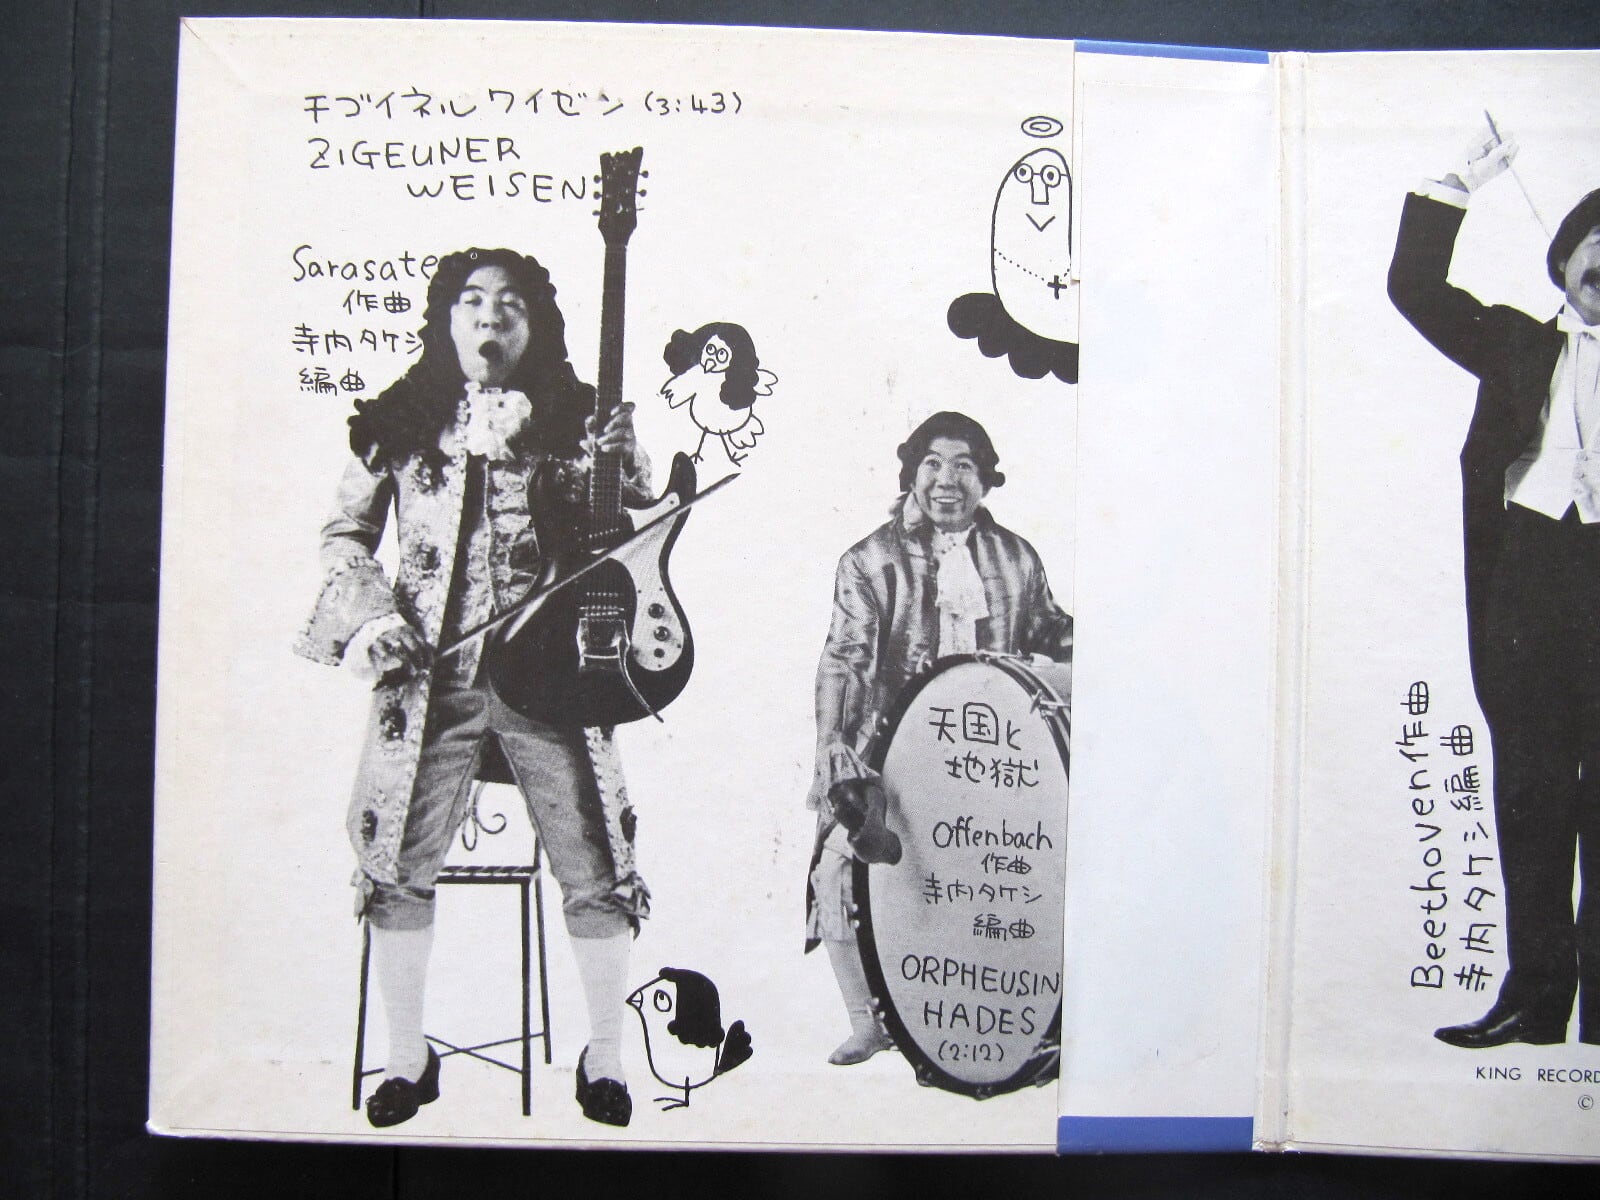 チゴイネルワイゼン (3:43)
ZIGEUNER
WEISEN
Sarasate
作曲
寺内タケシ
編曲
天国と
地獄
Offenbach
作曲
寺内タケシ
編曲
ORPHEUSIN
HADES
(2:12)
Beethoven作曲
寺内タケシ編曲
KING RECORD
©